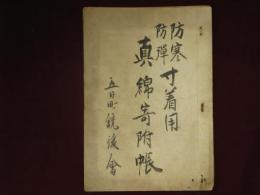 防寒
防弾
寸着用
真綿寄附帳
五日町銃後會